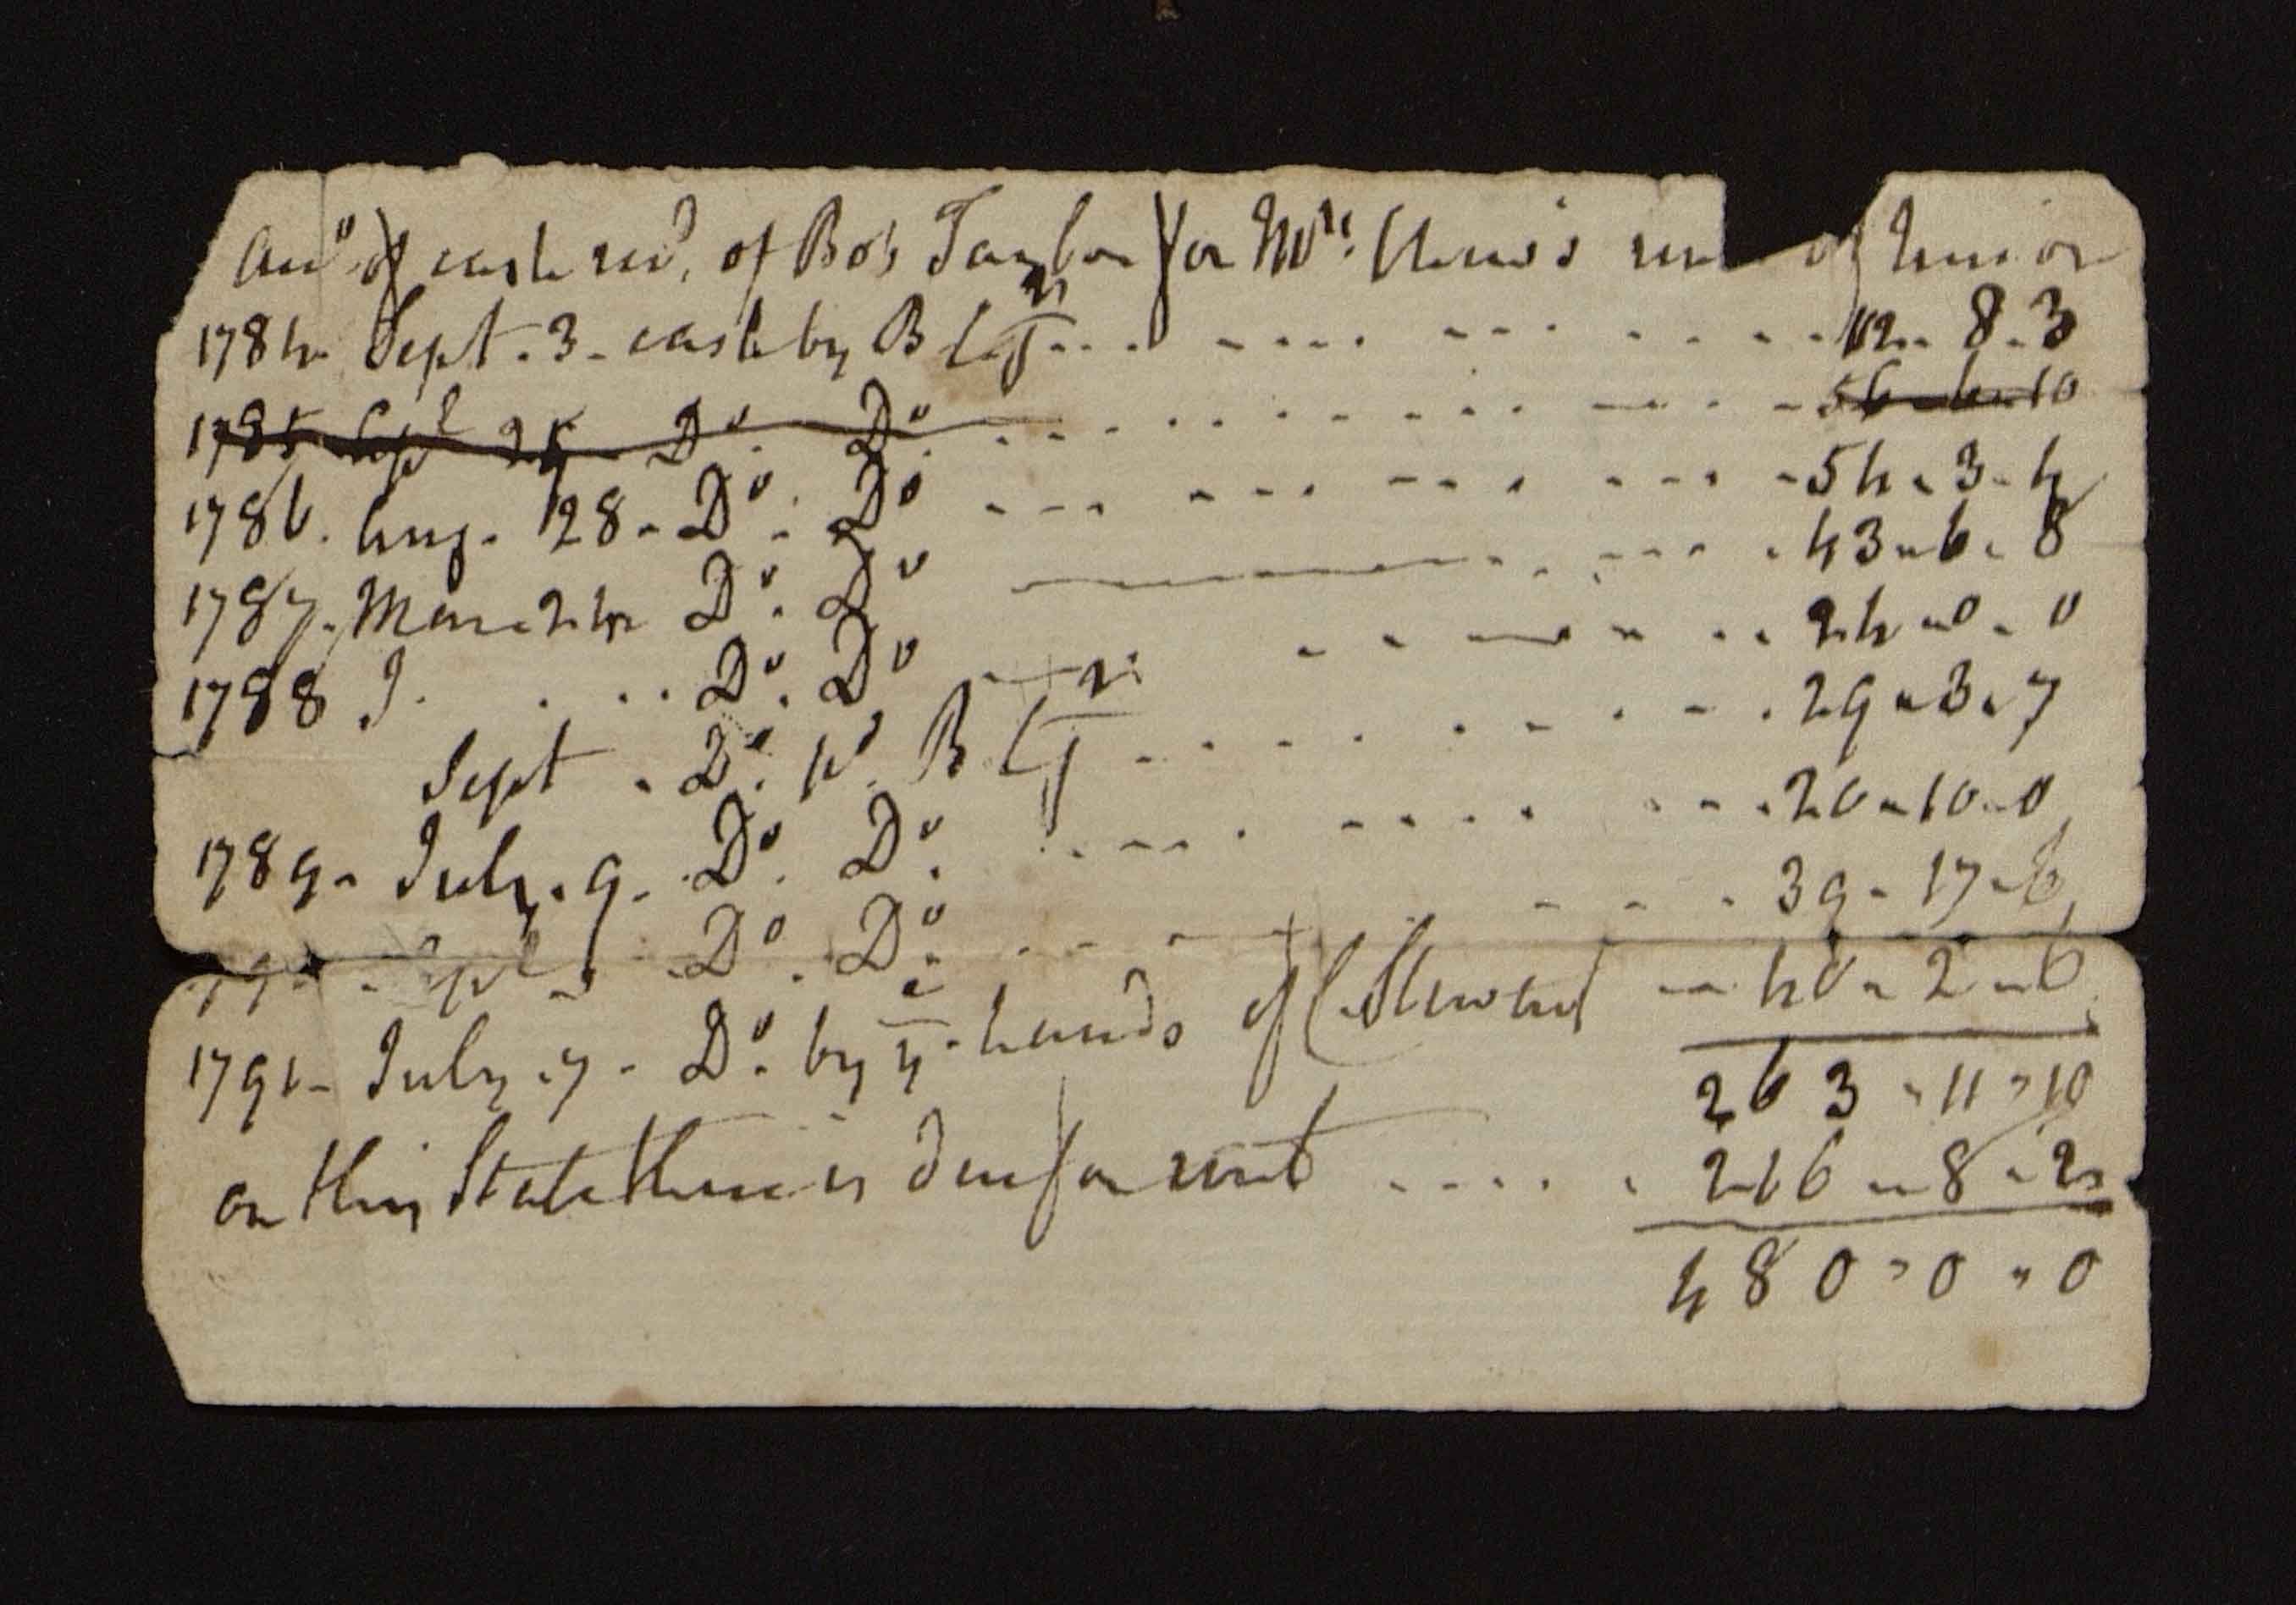 Acco. of cash recd. of Bob Taylor for Mrs. rent of
1784 Sept. 3 - cash by B .... 12 - 8 - 3
1785 Sept 25 - Do. Do. .... 56 - 6 - 10
1786. Aug. 28 - Do. Do .... 54 - 3 - 4
1787. March 24 Do. Do .... 43 - 6 - 8
1788 J. .... Do. Do .... 24 - 0 - 0
Sept - Do. pr. B .... 29 - 3 - 7
1789 - July. 9 - Do. Do. .... 20 - 10 - 0
Sept Do. Do. .... 39 - 17 - 6
1791 - July. 7 - Do. by ye hands of C Steward - 40 - 2 - 6
263 - 11 - 10
on this State there is due for rent .... 216 - 8 - 2
480 - 0 - 0